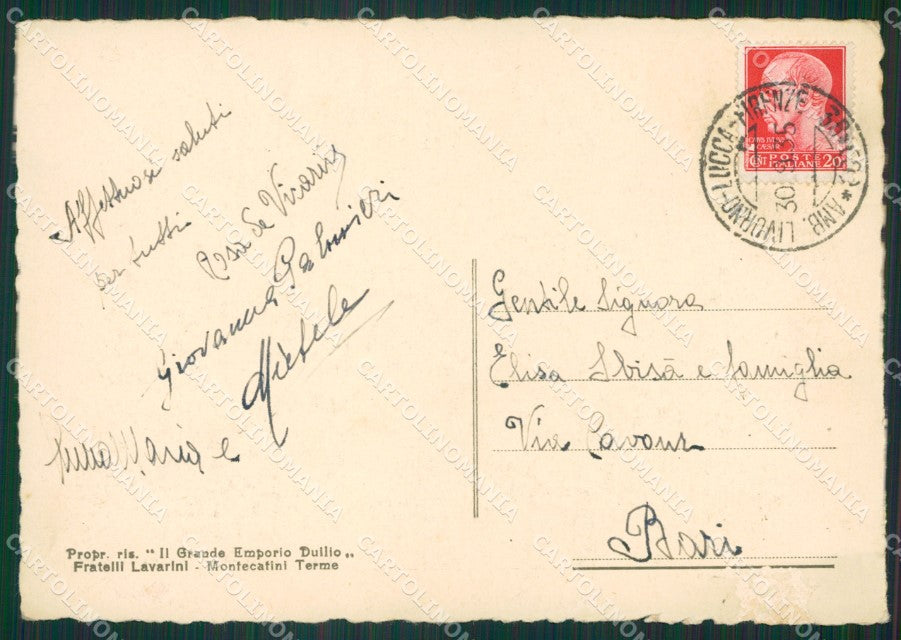 Affettuosi saluti
per tutti
Rosa De Vivariis
Giovanna Palmieri
Michele
Anna Maria e
Propr. ris. " Il Grande Emporio Duilio „
Fratelli Lavarini - Montecatini Terme
POSTE
ITALIANE
CENT 20
* AMB. LIVORNO-LUCCA-FIRENZE
30
Gentile Signora
Elisa Sbisà e famiglia
Via Cavour
Bari
CARTOLINOMANIA